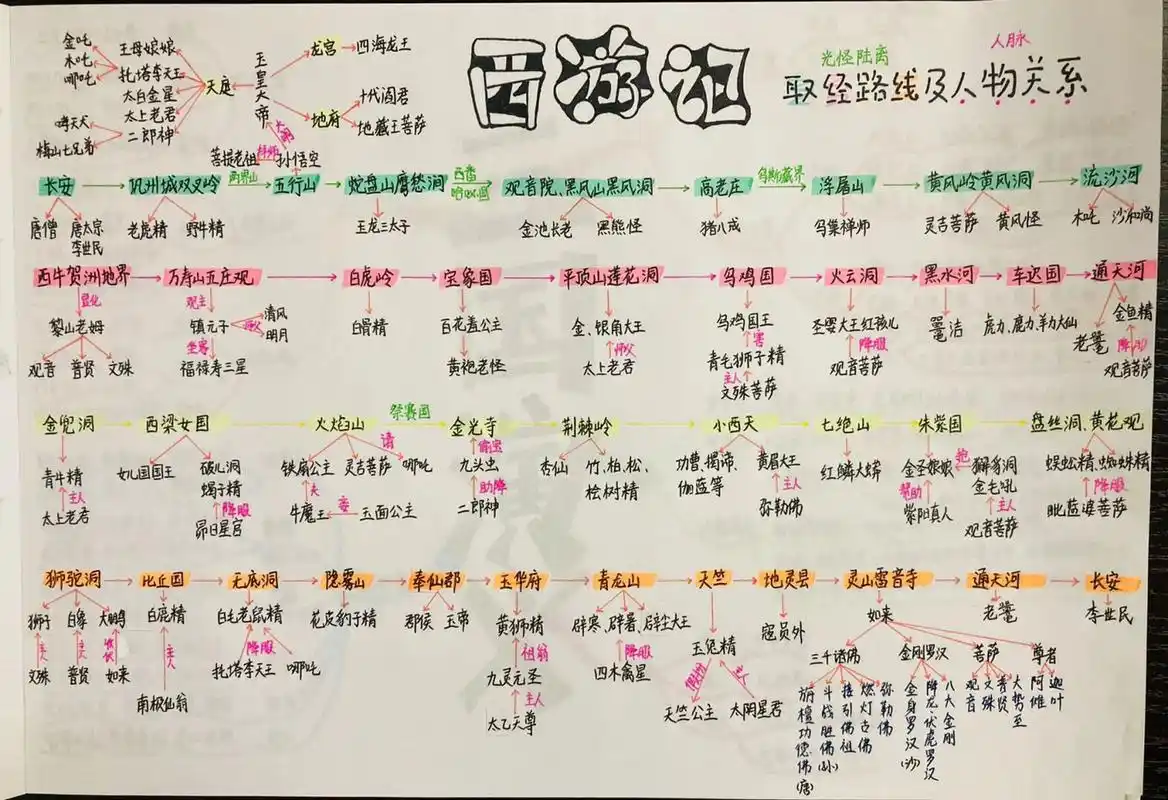 西游记
光怪陆离 人脉
取经路线及人物关系
金吒
木吒
哪吒
王母娘娘
托塔李天王
太白金星
太上老君
二郎神
哮天犬
梅山七兄弟
天庭
玉皇大帝
龙宫 四海龙王
地府 十代阎君
地藏王菩萨
大闹
菩提老祖 拜师 孙悟空
长安 巩州城双叉岭 两界山 五行山 蛇盘山鹰愁涧 西番哈咇国 观音院、黑风山黑风洞 高老庄 乌斯藏界 浮屠山 黄风岭黄风洞 流沙河
唐僧 唐太宗 老虎精 野牛精 玉龙三太子 金池长老 黑熊怪 猪八戒 乌巢禅师 灵吉菩萨 黄风怪 木吒 沙和尚
李世民
西牛贺洲地界 万寿山五庄观 白虎岭 宝象国 平顶山莲花洞 乌鸡国 火云洞 黑水河 车迟国 通天河
显化 观主
黎山老姆 镇元子 师父 清风 明月 白骨精 百花羞公主 金、银角大王 乌鸡国王 圣婴大王红孩儿 鼍洁 虎力、鹿力、羊力大仙 金鱼精
坐客 师父 害 降服 老鼋 降服
观音 普贤 文殊 福禄寿三星 黄袍老怪 太上老君 青毛狮子精 观音菩萨 观音菩萨
主人
文殊菩萨
金兜洞 西梁女国 火焰山 祭赛国 金光寺 荆棘岭 小西天 七绝山 朱紫国 盘丝洞、黄花观
请 偷宝
青牛精 女儿国国王 破儿洞 铁扇公主 灵吉菩萨 哪吒 九头虫 杏仙 竹、柏、松、 功曹、揭谛、 黄眉大王 红鳞大蟒 金圣娘娘 抢 獬豸洞 蜈蚣精、蜘蛛精
蝎子精 桧树精 伽蓝等 金毛吼
主人 降服 夫 助降 主人 帮助 主人 降服
太上老君 昴日星官 牛魔王 妾 玉面公主 二郎神 弥勒佛 紫阳真人 观音菩萨 毗蓝婆菩萨
狮驼洞 比丘国 无底洞 隐雾山 奉仙郡 玉华府 青龙山 天竺 地灵县 灵山雷音寺 通天河 长安
狮子 白象 大鹏 白鹿精 白毛老鼠精 花皮豹子精 郡侯 玉帝 黄狮精 辟寒、辟暑、辟尘大王 玉兔精 寇员外 如来 老鼋 李世民
主人 主人 主人 降服 祖翁 降服 假扮 主人
文殊 普贤 如来 南极仙翁 托塔李天王 哪吒 九灵元圣 四木禽星 天竺公主 太阴星君
主人
太乙天尊
三千诸佛 金刚罗汉 菩萨 尊者
旃檀功德佛(唐)
斗战胜佛(孙)
接引佛祖
燃灯古佛
弥勒佛
金身罗汉(沙)
降龙、伏虎罗汉
八大金刚
观音
文殊
普贤
大势至
阿傩
迦叶